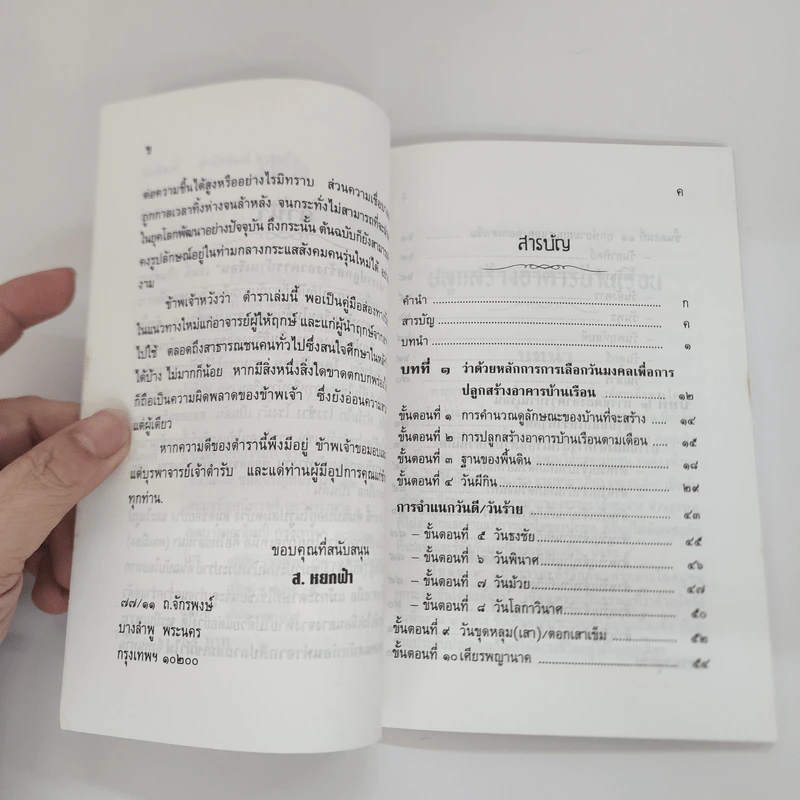 ข
ต่อความชื้นได้สูงหรืออย่างไรมิทราบ ส่วนความเชื่อ
ถูกกาลเวลาทิ้งห่างจนล้าหลัง จนกระทั่งไม่สามารถที่จะ
ในยุคโลกพัฒนาอย่างปัจจุบัน ถึงกระนั้น ต้นฉบับก็ยังสามารถ
คงรูปลักษณ์อยู่ในท่ามกลางกระแสสังคมคนรุ่นใหม่ได้
งาม
ข้าพเจ้าหวังว่า ตำราเล่มนี้ พอเป็นคู่มือส่องทาง
ในแนวทางใหม่แก่อาจารย์ผู้ให้ฤกษ์ และแก่ผู้นำฤกษ์
ไปใช้ ตลอดถึงสาธารณชนคนทั่วไปซึ่งสนใจศึกษาใน
ได้บ้าง ไม่มากก็น้อย หากมีสิ่งหนึ่งสิ่งใดขาดตกบกพร่อง
ก็ถือเป็นความผิดพลาดของข้าพเจ้า ซึ่งยังอ่อนความ
แต่ผู้เดียว
หากความดีของตำรานี้พึงมีอยู่ ข้าพเจ้าขอมอบ
แด่บุรพาจารย์เจ้าตำรับ และแด่ท่านผู้มีอุปการคุณแก่ข้าพเจ้า
ทุกท่าน.
ขอบคุณที่สนับสนุน
ส. หยกฟ้า
๗๗/๑๑ ถ.จักรพงษ์
บางลำพู พระนคร
กรุงเทพฯ ๑๐๒๐๐
ค
สารบัญ
คำนำ ก
สารบัญ ค
บทนำ ๑
บทที่ ๑ ว่าด้วยหลักการการเลือกวันมงคลเพื่อการ
ปลูกสร้างอาคารบ้านเรือน ๑๒
ขั้นตอนที่ ๑ การคำนวณดูลักษณะของบ้านที่จะสร้าง ๑๔
ขั้นตอนที่ ๒ การปลูกสร้างอาคารบ้านเรือนตามเดือน ๑๕
ขั้นตอนที่ ๓ ฐานของพื้นดิน ๑๘
ขั้นตอนที่ ๔ วันผีกิน ๒๙
การจำแนกวันดี/วันร้าย ๔๓
– ขั้นตอนที่ ๕ วันธงชัย ๔๕
– ขั้นตอนที่ ๖ วันพินาศ ๔๖
– ขั้นตอนที่ ๗ วันม้วย ๔๗
– ขั้นตอนที่ ๘ วันโลกาวินาศ ๕๐
ขั้นตอนที่ ๙ วันขุดหลุม(เสา)/ตอกเสาเข็ม ๕๒
ขั้นตอนที่ ๑๐ เศียรพญานาค ๕๔